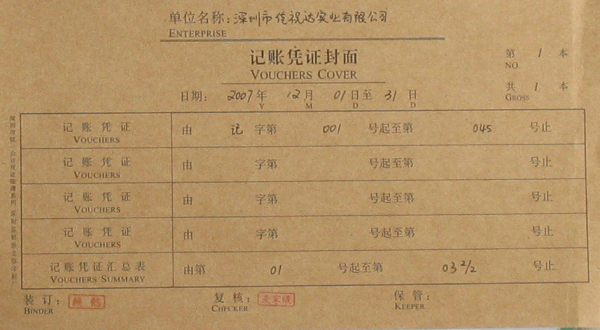 单位名称：深圳市佳视达实业有限公司
ENTERPRISE
记账凭证封面
VOUCHERS COVER
第 1 本
NO.
共 1 本
GROSS
日期：2007年 12月 01日至 31日
Y M D D
记账凭证 由 记 字第 001 号起至第 045 号止
VOUCHERS
记账凭证 由 字第 号起至第 号止
VOUCHERS
记账凭证 由 字第 号起至第 号止
VOUCHERS
记账凭证 由 字第 号起至第 号止
VOUCHERS
记账凭证汇总表 由第 01 号起至第 03 2/2 号止
VOUCHERS SUMMARY
装订： 复核： 保管：
BINDER CHECKER KEEPER